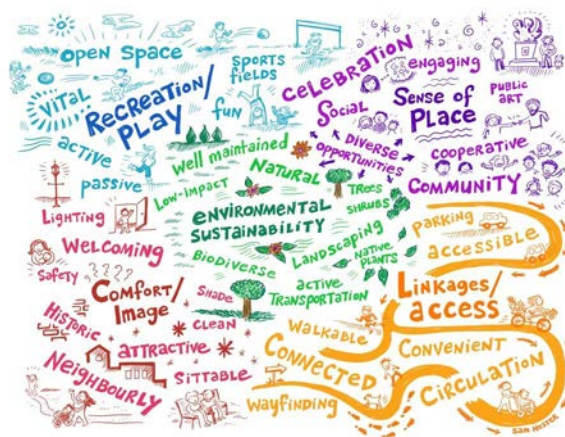 open Space
SPORTS
fields
ViTAL
RecReation/
PLAY
fun
active
passive
CeLeBRATiON
engaging
Social
Sense of
PLace
PUBLIC
ART
DiveRSe
oppoRTUNiTieS
cooperative
COMMUNiTY
Well maintained
NaTURaL
Low-impacT
TRees
SHRUBS
eNViRONMeNTaL
SUSTaiNaBiLiTY
Landscaping
NaTiVe
PLANTS
BiODiveRSe
active
TRaNSPORTaTioN
LigHTiNG
WeLcoming
Safety
????
Comfort/
Image
SHaDe
CLean
Historic
aTTRacTive
NeigHBOURLY
SiTTaBLe
PaRKiNG
accessible
Linkages/
access
WaLKaBLe
CONNecTeD
CONVeNieNT
CiRCULaTiON
WaYfiNDiNG
SaM HeSTeR